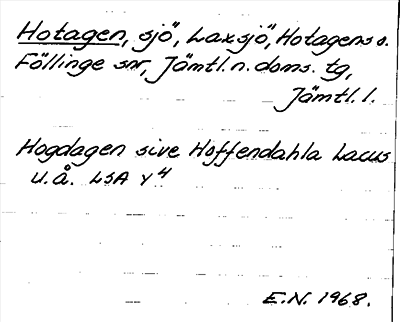 Hotagen, sjö, Laxsjö, Hotagens o.
Föllinge snr, Jämtl. n. doms. tg,
Jämtl. l.
Hogdagen sive Hoffendahla Lacus
U.å. LSA Y4
E.N. 1968.